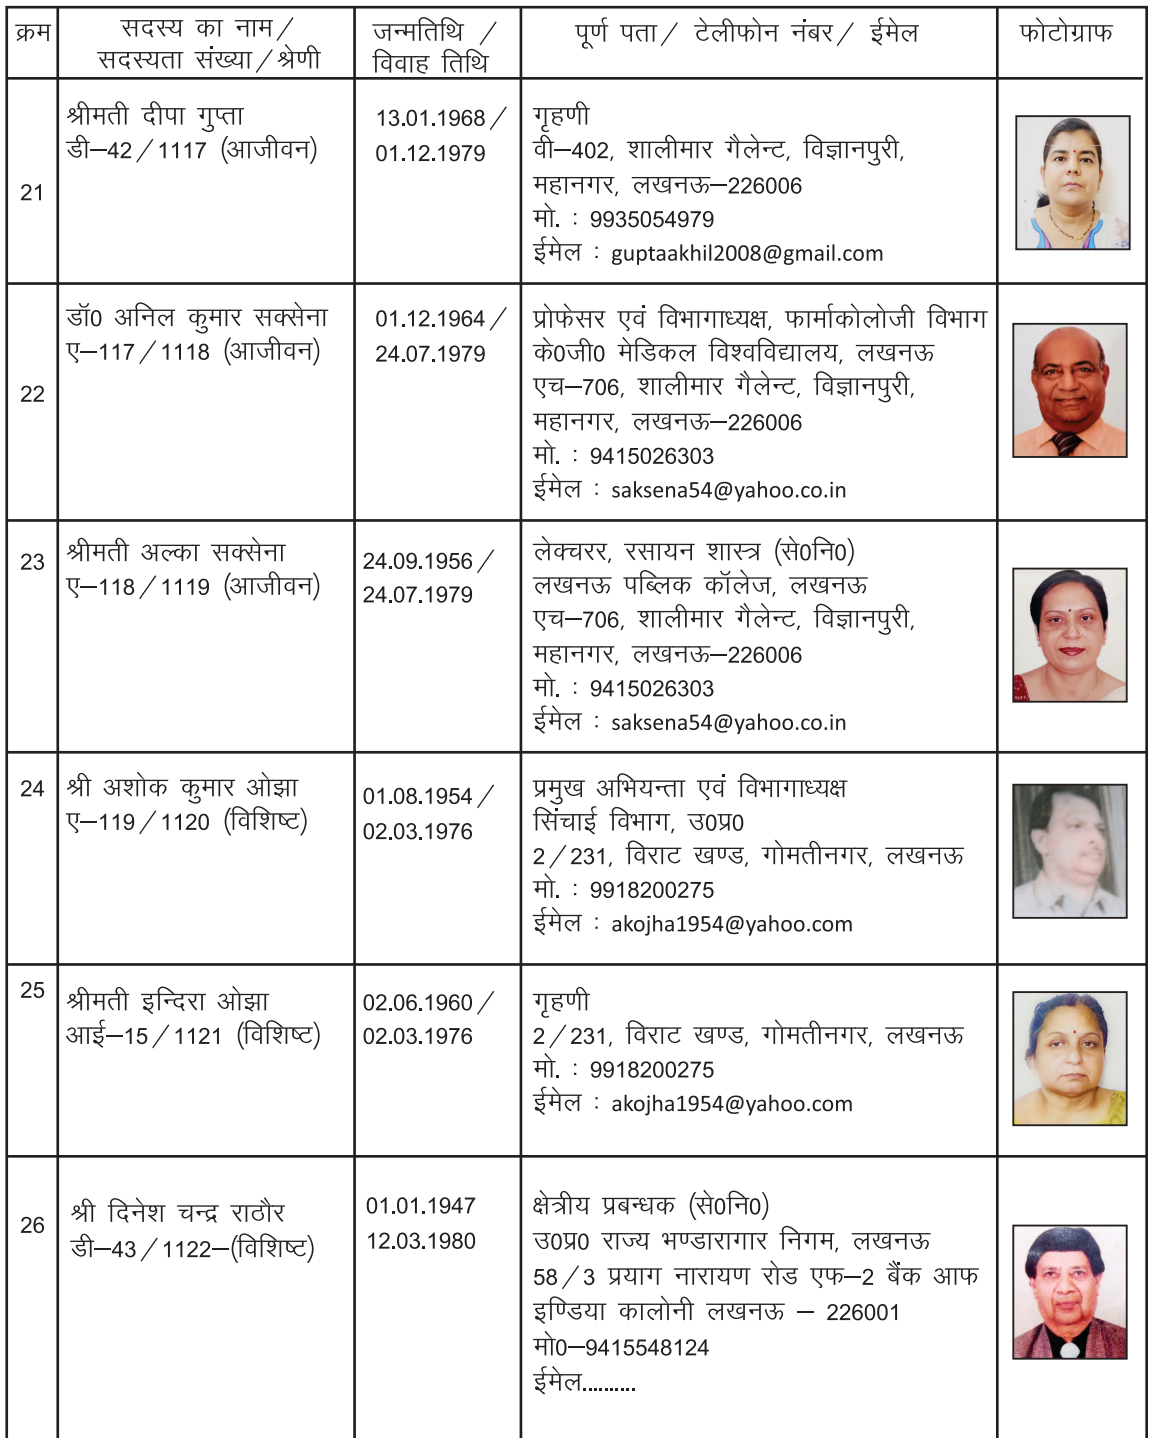 क्रम
सदस्य का नाम/
सदस्यता संख्या/श्रेणी
जन्मतिथि /
विवाह तिथि
पूर्ण पता/ टेलीफोन नंबर/ ईमेल
फोटोग्राफ
21
श्रीमती दीपा गुप्ता
डी–42/1117 (आजीवन)
13.01.1968/
01.12.1979
गृहणी
वी–402, शालीमार गैलेन्ट, विज्ञानपुरी,
महानगर, लखनऊ–226006
मो. : 9935054979
ईमेल : guptaakhil2008@gmail.com
22
डॉ0 अनिल कुमार सक्सेना
ए–117/1118 (आजीवन)
01.12.1964/
24.07.1979
प्रोफेसर एवं विभागाध्यक्ष, फार्माकोलोजी विभाग
के0जी0 मेडिकल विश्वविद्यालय, लखनऊ
एच–706, शालीमार गैलेन्ट, विज्ञानपुरी,
महानगर, लखनऊ–226006
मो. : 9415026303
ईमेल : saksena54@yahoo.co.in
23
श्रीमती अल्का सक्सेना
ए–118/1119 (आजीवन)
24.09.1956/
24.07.1979
लेक्चरर, रसायन शास्त्र (से0नि0)
लखनऊ पब्लिक कॉलेज, लखनऊ
एच–706, शालीमार गैलेन्ट, विज्ञानपुरी,
महानगर, लखनऊ–226006
मो. : 9415026303
ईमेल : saksena54@yahoo.co.in
24
श्री अशोक कुमार ओझा
ए–119/1120 (विशिष्ट)
01.08.1954/
02.03.1976
प्रमुख अभियन्ता एवं विभागाध्यक्ष
सिंचाई विभाग, उ0प्र0
2/231, विराट खण्ड, गोमतीनगर, लखनऊ
मो. : 9918200275
ईमेल : akojha1954@yahoo.com
25
श्रीमती इन्दिरा ओझा
आई–15/1121 (विशिष्ट)
02.06.1960/
02.03.1976
गृहणी
2/231, विराट खण्ड, गोमतीनगर, लखनऊ
मो. : 9918200275
ईमेल : akojha1954@yahoo.com
26
श्री दिनेश चन्द्र राठौर
डी–43/1122–(विशिष्ट)
01.01.1947
12.03.1980
क्षेत्रीय प्रबन्धक (से0नि0)
उ0प्र0 राज्य भण्डारागार निगम, लखनऊ
58/3 प्रयाग नारायण रोड एफ–2 बैंक आफ
इण्डिया कालोनी लखनऊ – 226001
मो0–9415548124
ईमेल..........